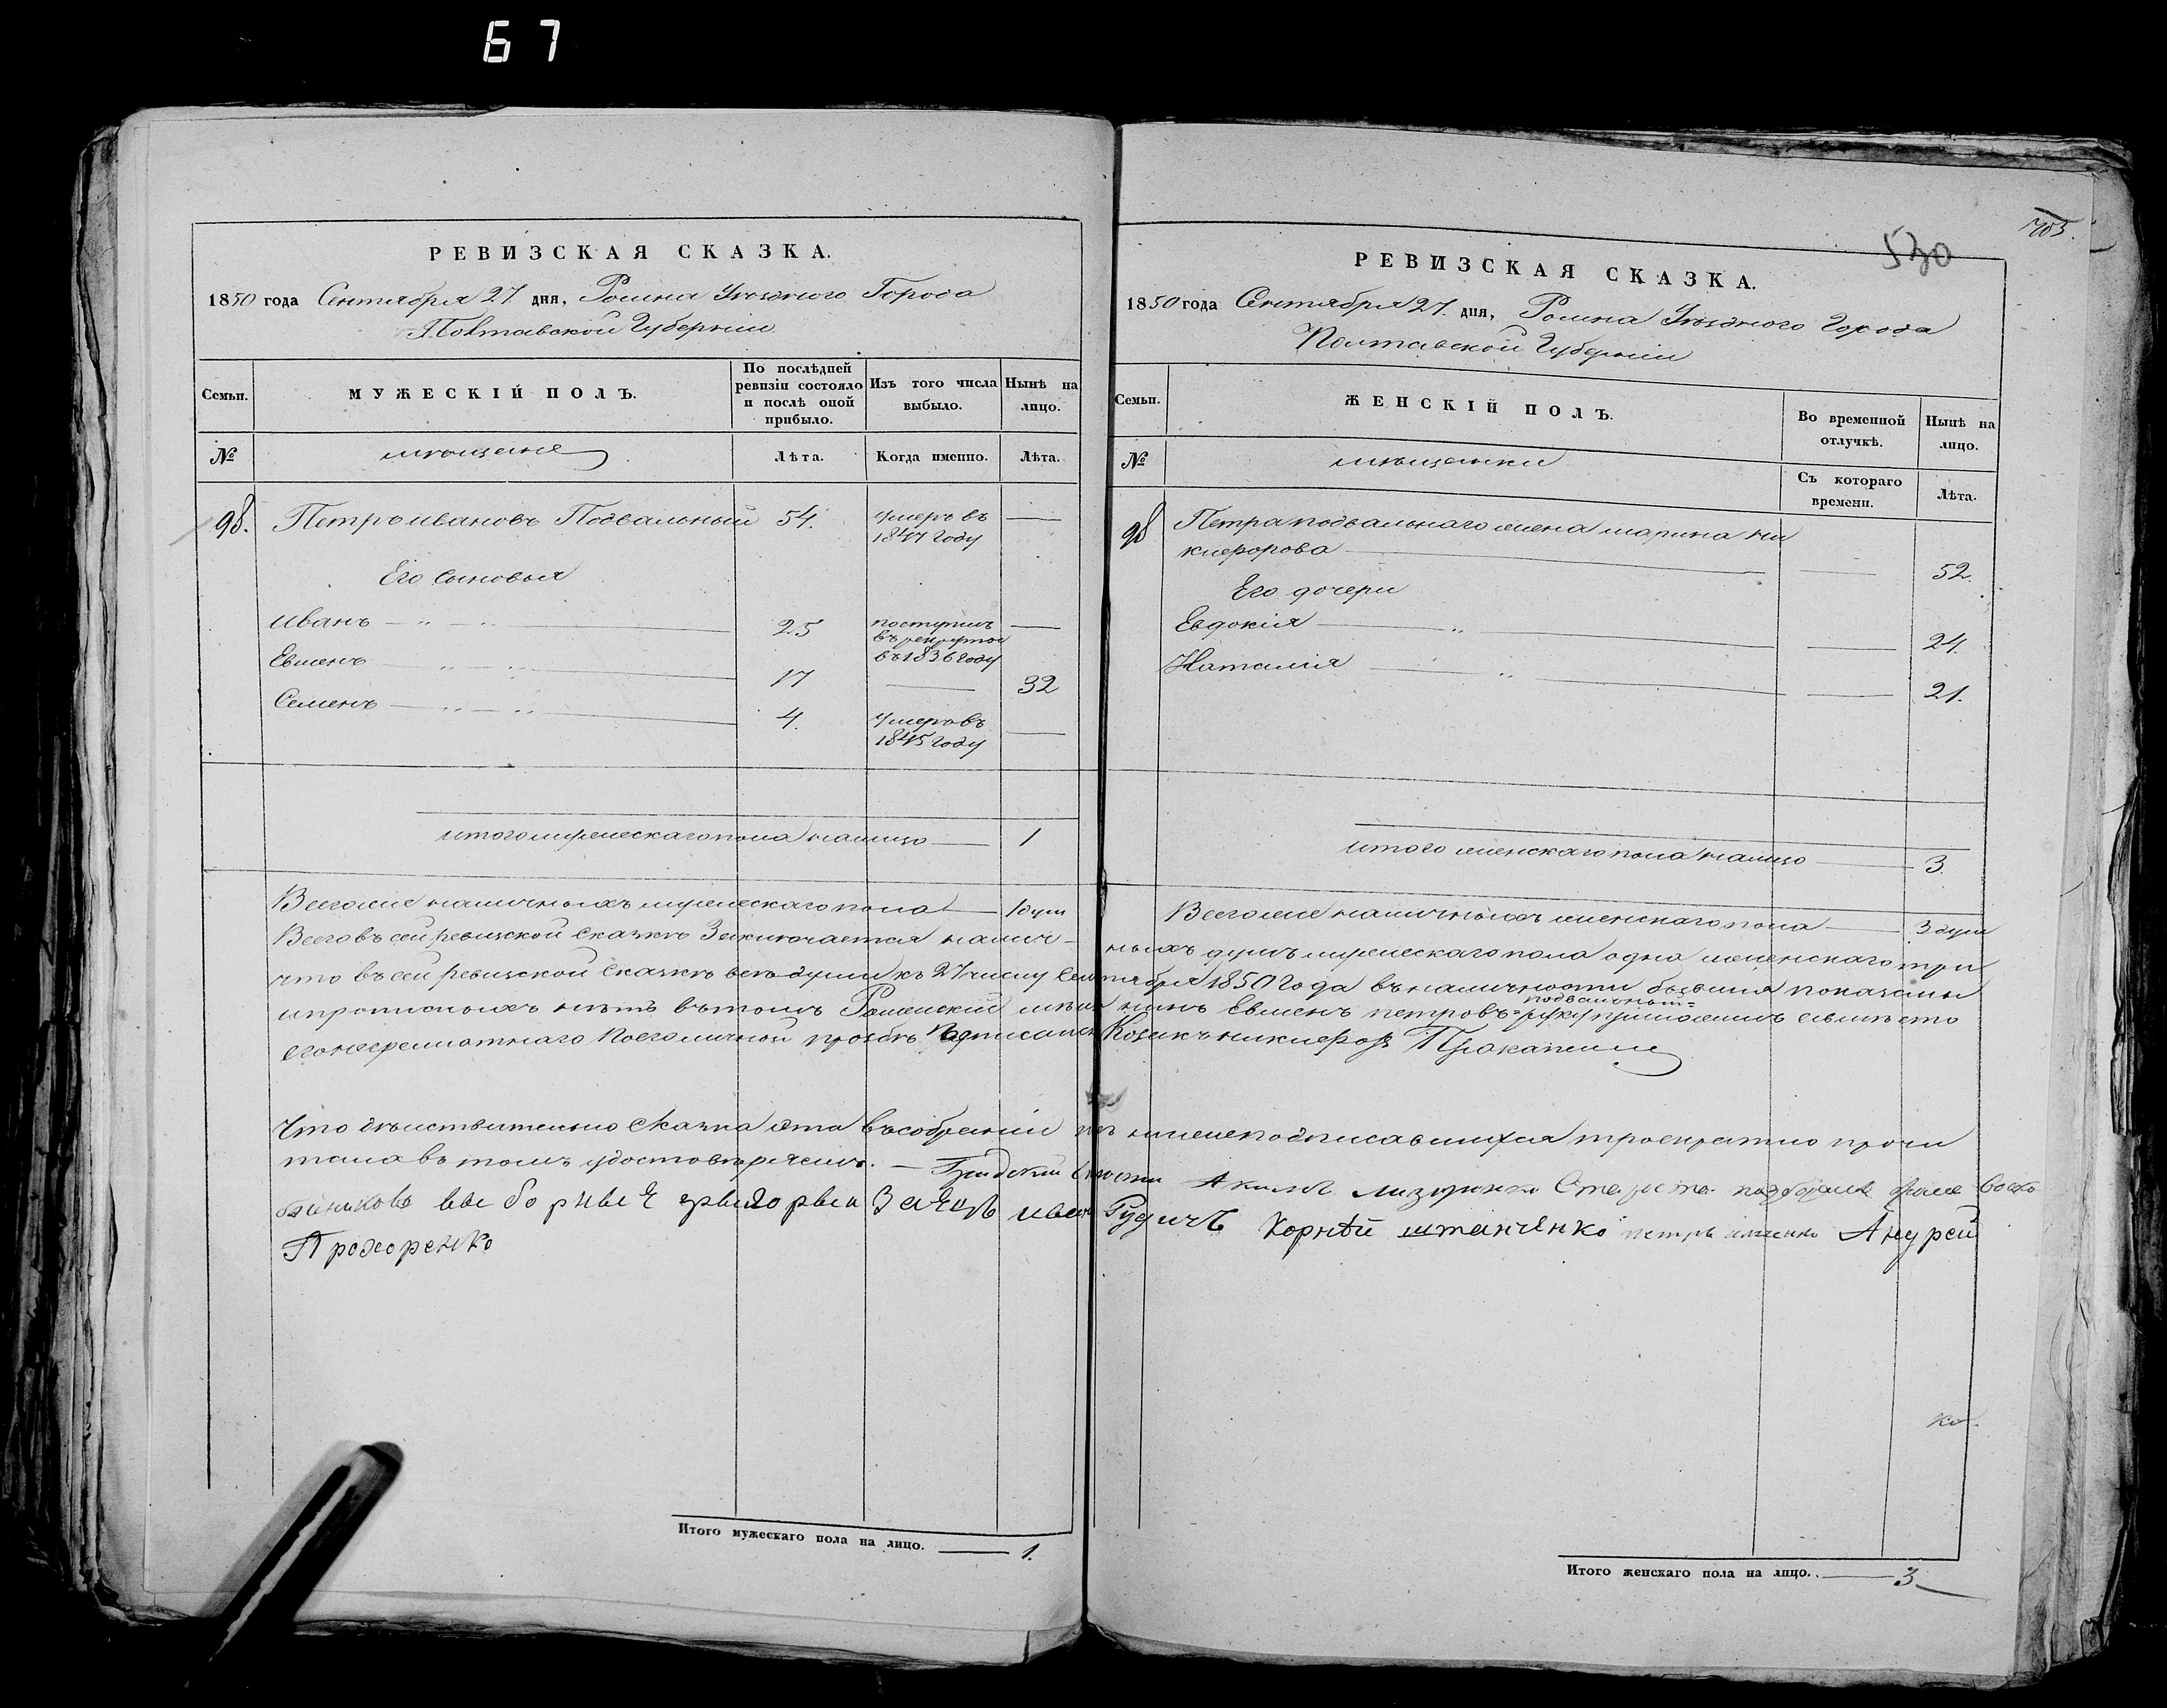 67
РЕВИЗСКАЯ СКАЗКА.
1850 года Сентября 27 дня, Ромна Уѣзднаго Города
Полтавской Губерніи
Семьи.
МУЖЕСКІЙ ПОЛЪ.
По послѣдней
ревизіи состояло
и послѣ оной
прибыло.
Изъ того числа
выбыло.
Нынѣ на
лицо.
№
мѣщане
Лѣта.
Когда именно.
Лѣта.
98. Петръ Ивановъ Подвальный 54. умеръ въ
1847 году
Его сыновья
Иванъ 25 поступилъ
въ рекруты
въ 1836 году
Евменъ 17 32
Семенъ 4. умеръ въ
1845 году
итого мужескаго пола налицо 1
Всего же наличныхъ мужескаго пола 1 душ
Итого мужескаго пола на лицо. 1.
703.
530
РЕВИЗСКАЯ СКАЗКА.
1850 года Сентября 27. дня, Ромна Уѣзднаго Города
Полтавской Губерніи
Семьи.
ЖЕНСКІЙ ПОЛЪ.
Во временной
отлучкѣ.
Нынѣ на
лицо.
№
мѣщанки
Съ котораго
времени.
Лѣта.
98 Петра Подвальнаго жена Марина Ни
кифорова 52.
Его дочери
Евдокія 24.
Наталія 21.
итого женскаго пола налицо 3.
Всего же наличныхъ женскаго пола 3 душ
Всего въ сей ревизской сказкѣ Заключается налич-ныхъ душъ мужескаго пола одна женскаго три
что въ сей ревизской сказкѣ всѣ души къ 27 числу Сентября 1850 Года въ наличности бывшія показаны
и прописныхъ нѣтъ въ томъ Роменскій мѣщанинъ Евменъ Петровъ Подвальный руку приложилъ а вмѣсто
его неграмотнаго по его личной прозбѣ Подписалъ Козакъ Никифоръ
Что дѣйствительно Сказка эта въ собраніи нижеподписавшихся троекратно прочи
тана въ томъ удостовѣряемъ. — Градский Староста
выборные Заецъ Иванъ Рудичъ Корнѣй Штанченко Петръ Андрей
Прохоренко
Итого женскаго пола на лицо. 3